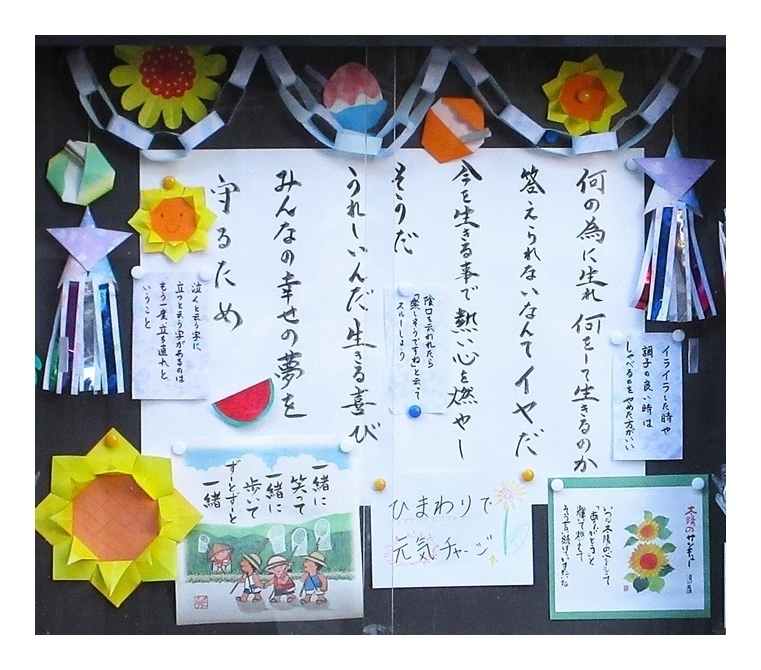 何の為に生れ 何をして生きるのか
答えられないなんてイヤだ
今を生きる事で 熱い心を燃やし
そうだ
うれしいんだ 生きる喜び
みんなの幸せの夢を
守るため
イライラした時や
調子の良い時は
しゃべるのをやめた方がいい
陰口を云われたら
「楽しそうですね」と云って
スルーしよう
泣くと云う字に
立つと云う字があるのは
もう一度、立ち直れと
いうこと
一緒に
笑って
一緒に
歩いて
ずーとずーと
一緒
ひまわりで
元気チャージ
太陽のサンキュー
「ありがとう」と